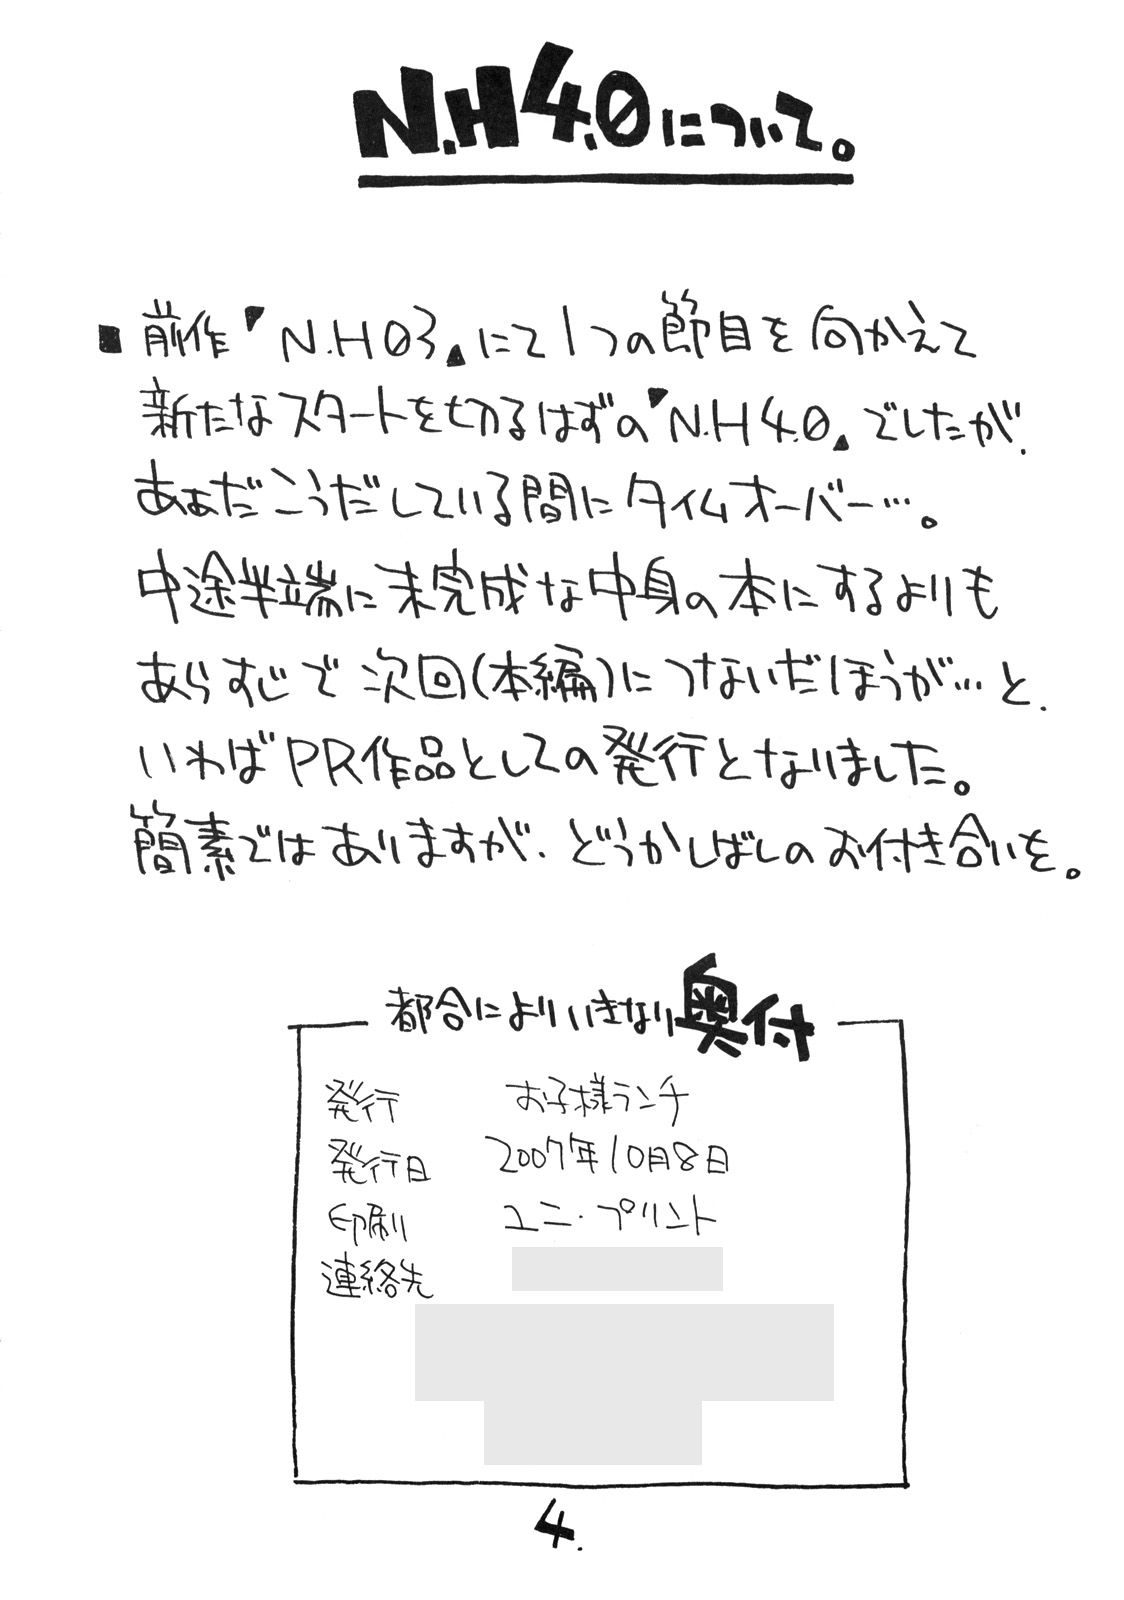 N.H4.0について。
■前作『N.H03』にて1つの節目を向かえて
新たなスタートを切るはずの『N.H4.0』でしたが、
あぁだこうだしている間にタイムオーバー…。
中途半端に未完成な中身の本にするよりも
あらすじで次回(本編)につないだほうが…と、
いわばPR作品としての発行となりました。
簡素ではありますが、どうかしばしのお付き合いを。
都合によりいきなり奥付
発行 お子様ランチ
発行日 2007年10月8日
印刷 ユニ・プリント
連絡先
4.